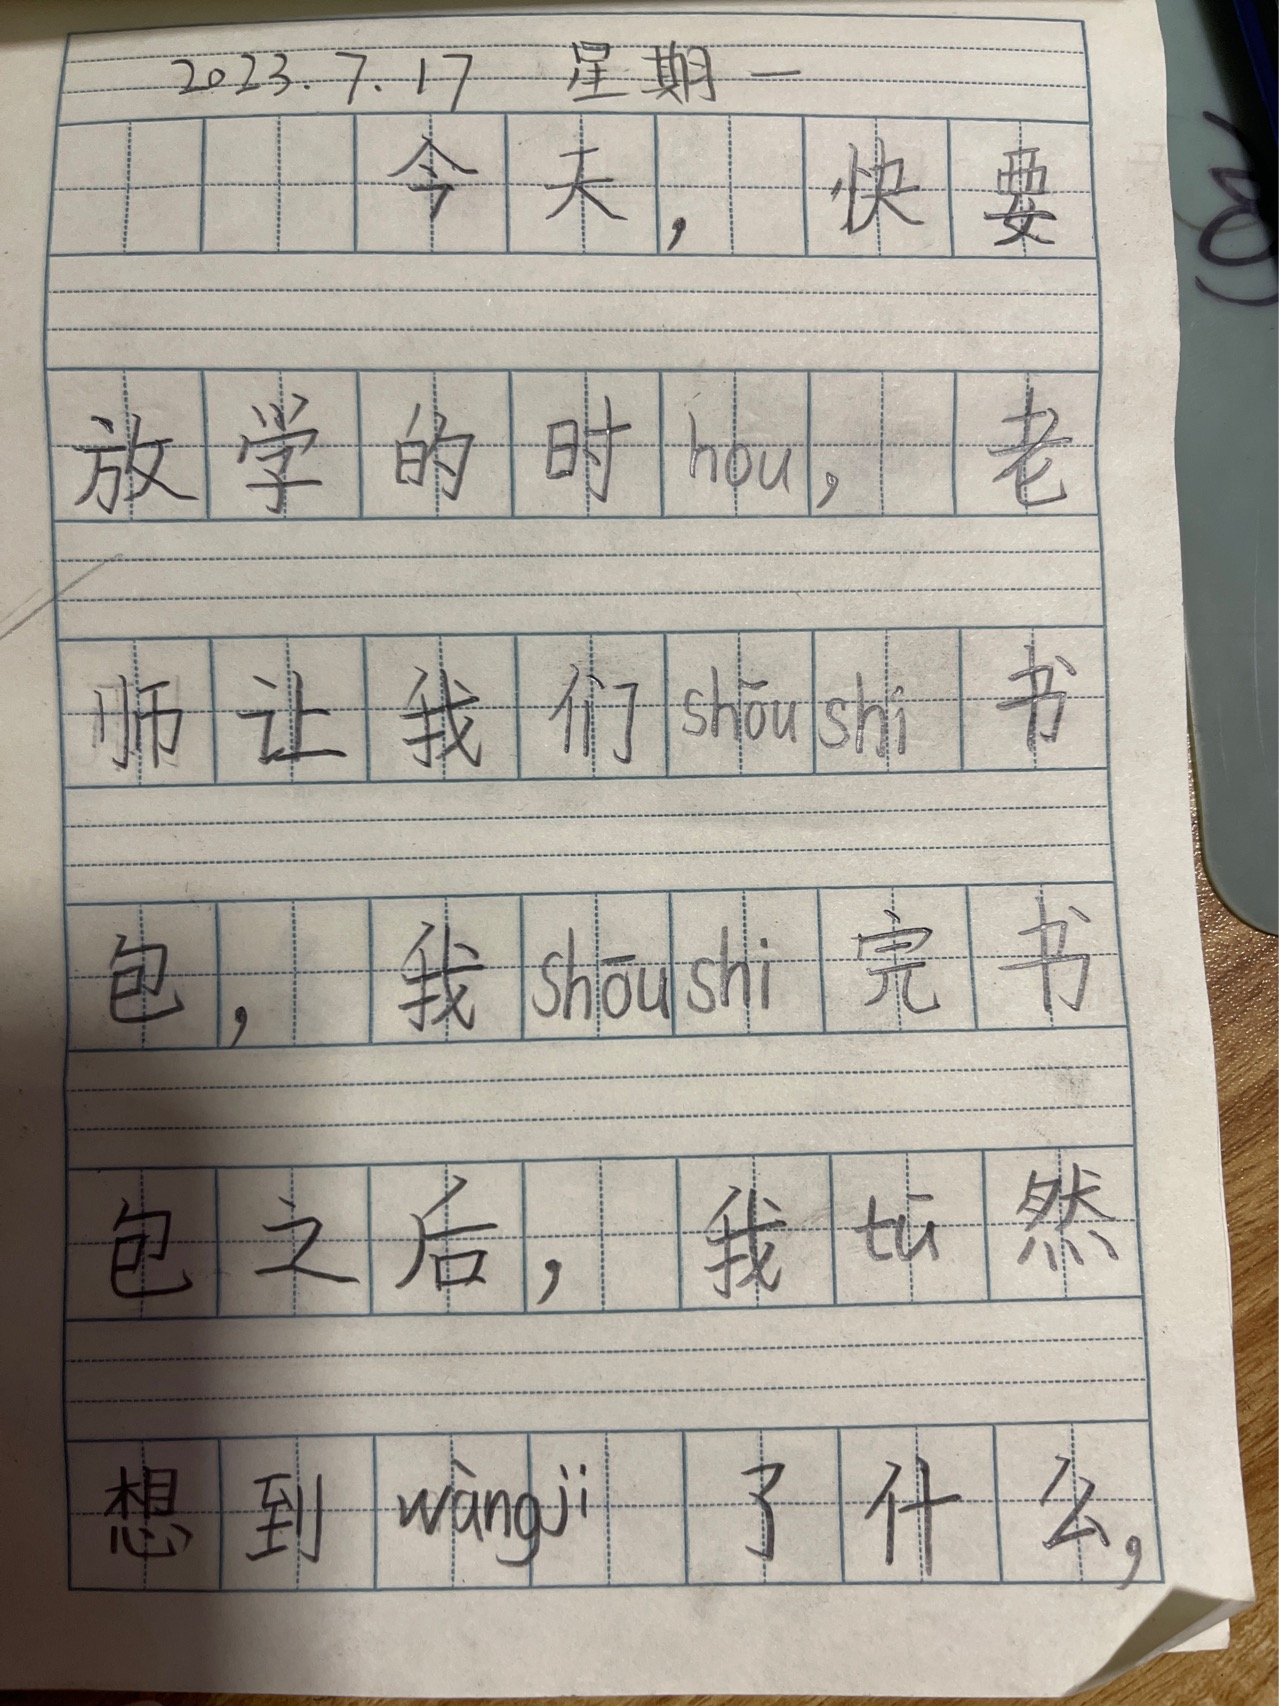 2023.7.17 星期一
今天,快要
放学的时hou,老
师让我们shōushi书
包,我shōushi完书
包之后,我tū然
想到wàngji了什么,